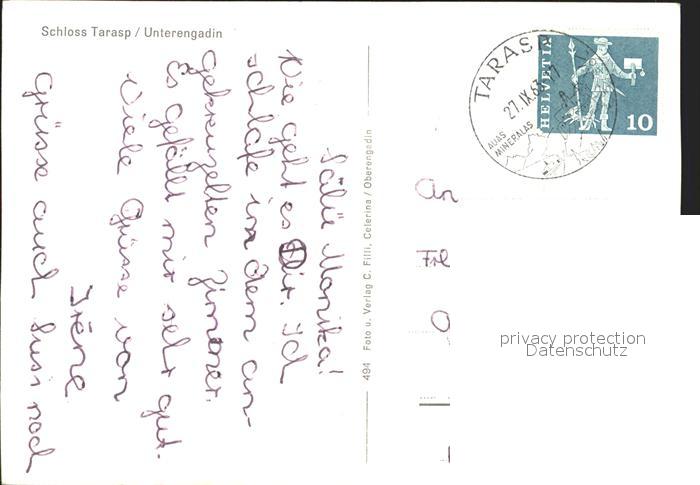 Schloss Tarasp / Unterengadin
Sälü Monika!
Wie geht es Dir. Ich
schlafe in dem an-
gekreuzelten Zimmer.
Es gefällt mir sehr gut.
Viele Grüsse von
Irène
Grüsse auch Susi noch
494 Foto u. Verlag C. Filli, Celerina / Oberengadin
TARASP
27.IX.63
AUAS
MINERALAS
HELVETIA
10
An
Frl
privacy protection
Datenschutz